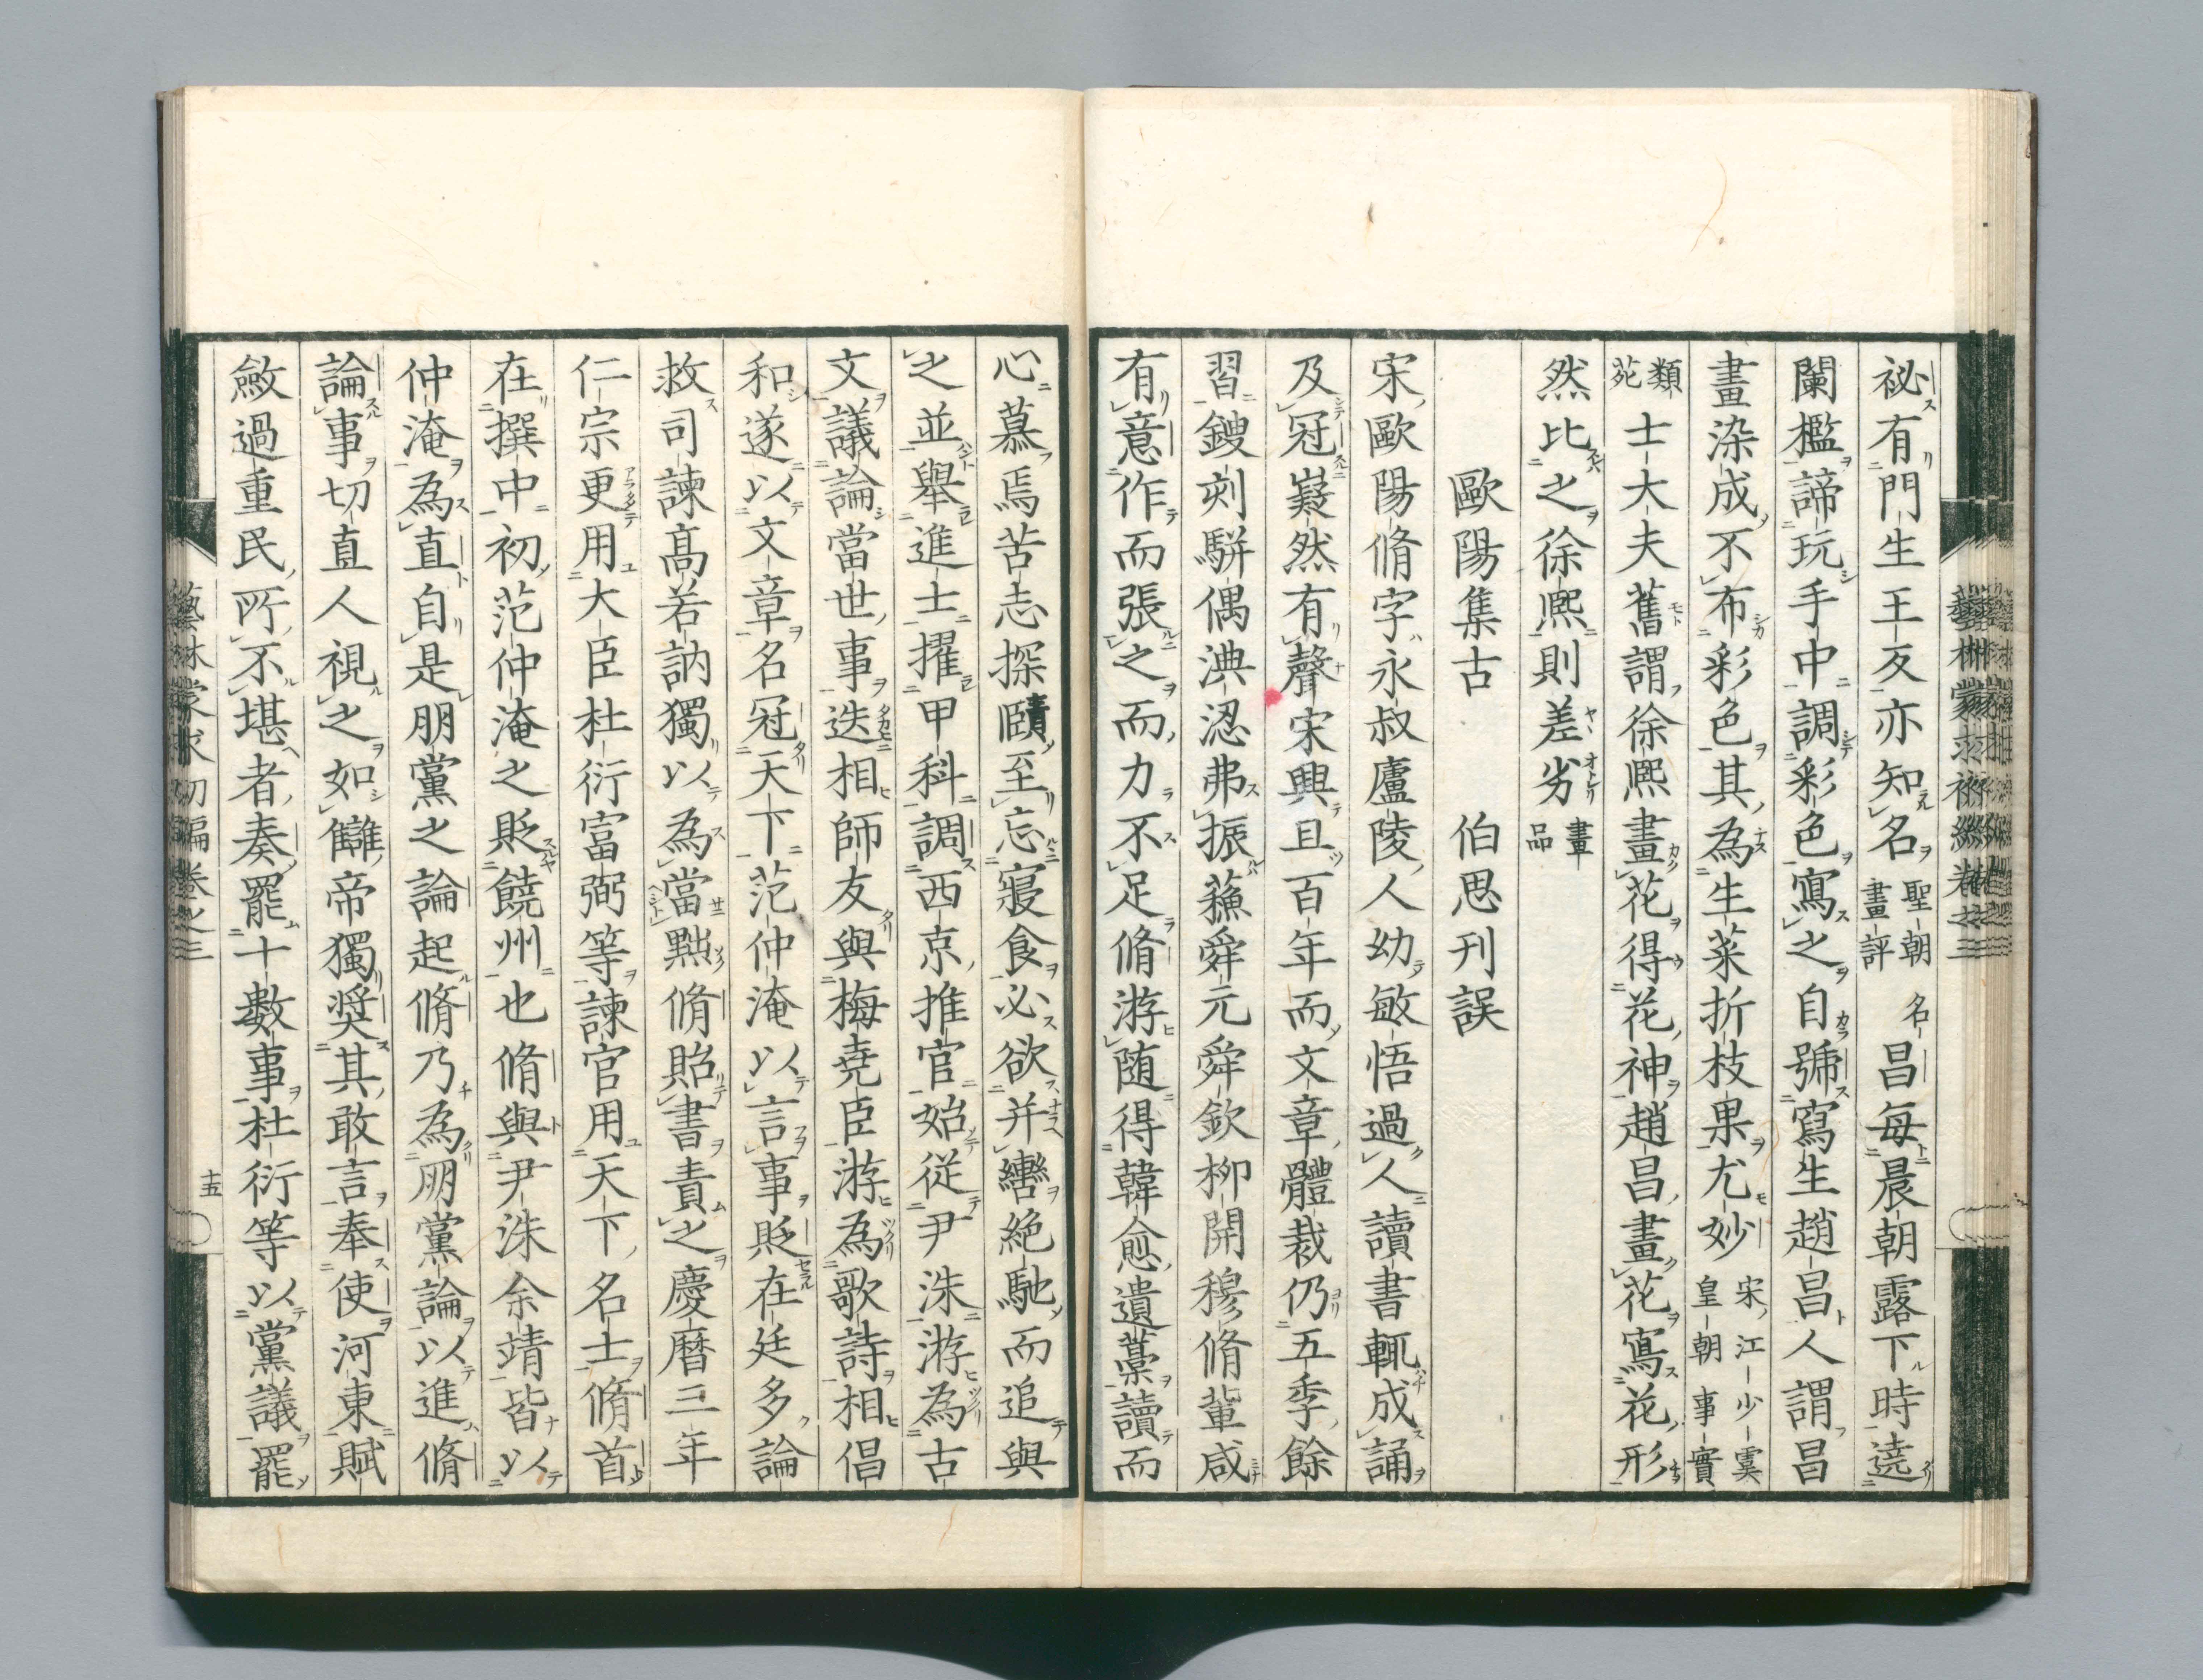 祕有門生王友亦知名聖朝畫評名昌每晨朝露下時遶
闌檻諦玩手中調彩色寫之自號寫生趙昌人謂昌
畫染成不布彩色其為生菜折枝果尤妙宋江少虞皇朝事實
類苑士大夫舊謂徐熙畫花得花神趙昌畫花寫花形
然比之徐熙則差劣畫品
歐陽集古　　伯思刊誤
宋歐陽脩字永叔廬陵人幼敏悟過人讀書輒成誦
及冠嶷然有聲宋興且百年而文章體裁仍五季餘
習鎪刻駢偶淟涊弗振蘓舜元舜欽柳開穆脩輩咸
有意作而張之而力不足脩游随得韓愈遺藁讀而
心慕焉苦志探賾至忘寢食必欲并轡絶馳而追與
之並舉進士擢甲科調西京推官始從尹洙游為古
文議論當世事迭相師友與梅堯臣游為歌詩相倡
和遂以文章名冠天下范仲淹以言事貶在廷多論
救司諫高若訥獨以為當黜脩貽書責之慶曆三年
仁宗更用大臣杜衍富弼等諫官用天下名士脩首
在撰中初范仲淹之貶饒州也脩與尹洙余靖皆以
仲淹為直自是朋黨之論起脩乃為朋黨論以進脩
論事切直人視之如讎帝獨奨其敢言奉使河東賦
斂過重民所不堪者奏罷十數事杜衍等以黨議罷
藝林蒙求初編卷之三
十五